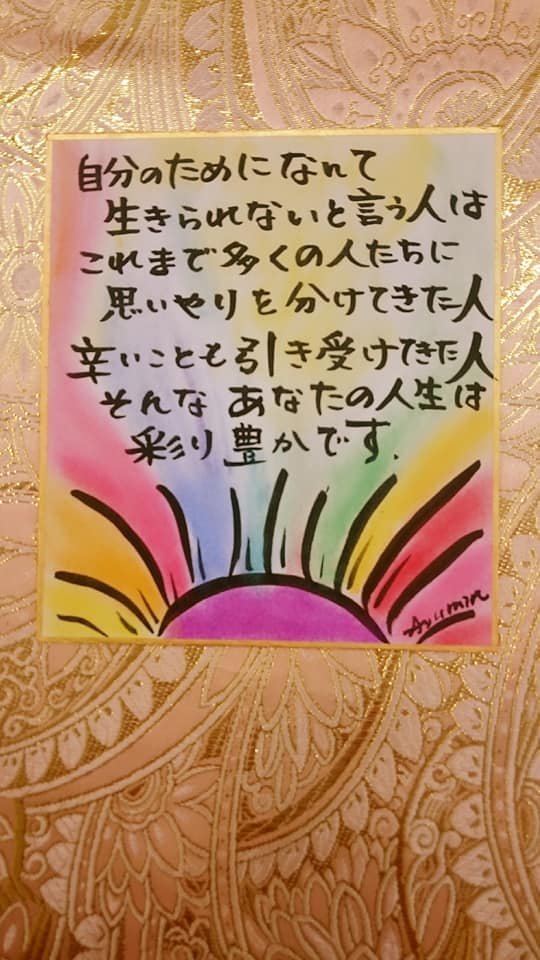 自分のためになんて
生きられないと言う人は
これまで多くの人たちに
思いやりを分けてきた人
辛いことも引き受けてきた人
そんなあなたの人生は
彩り豊かです.
Ayumin